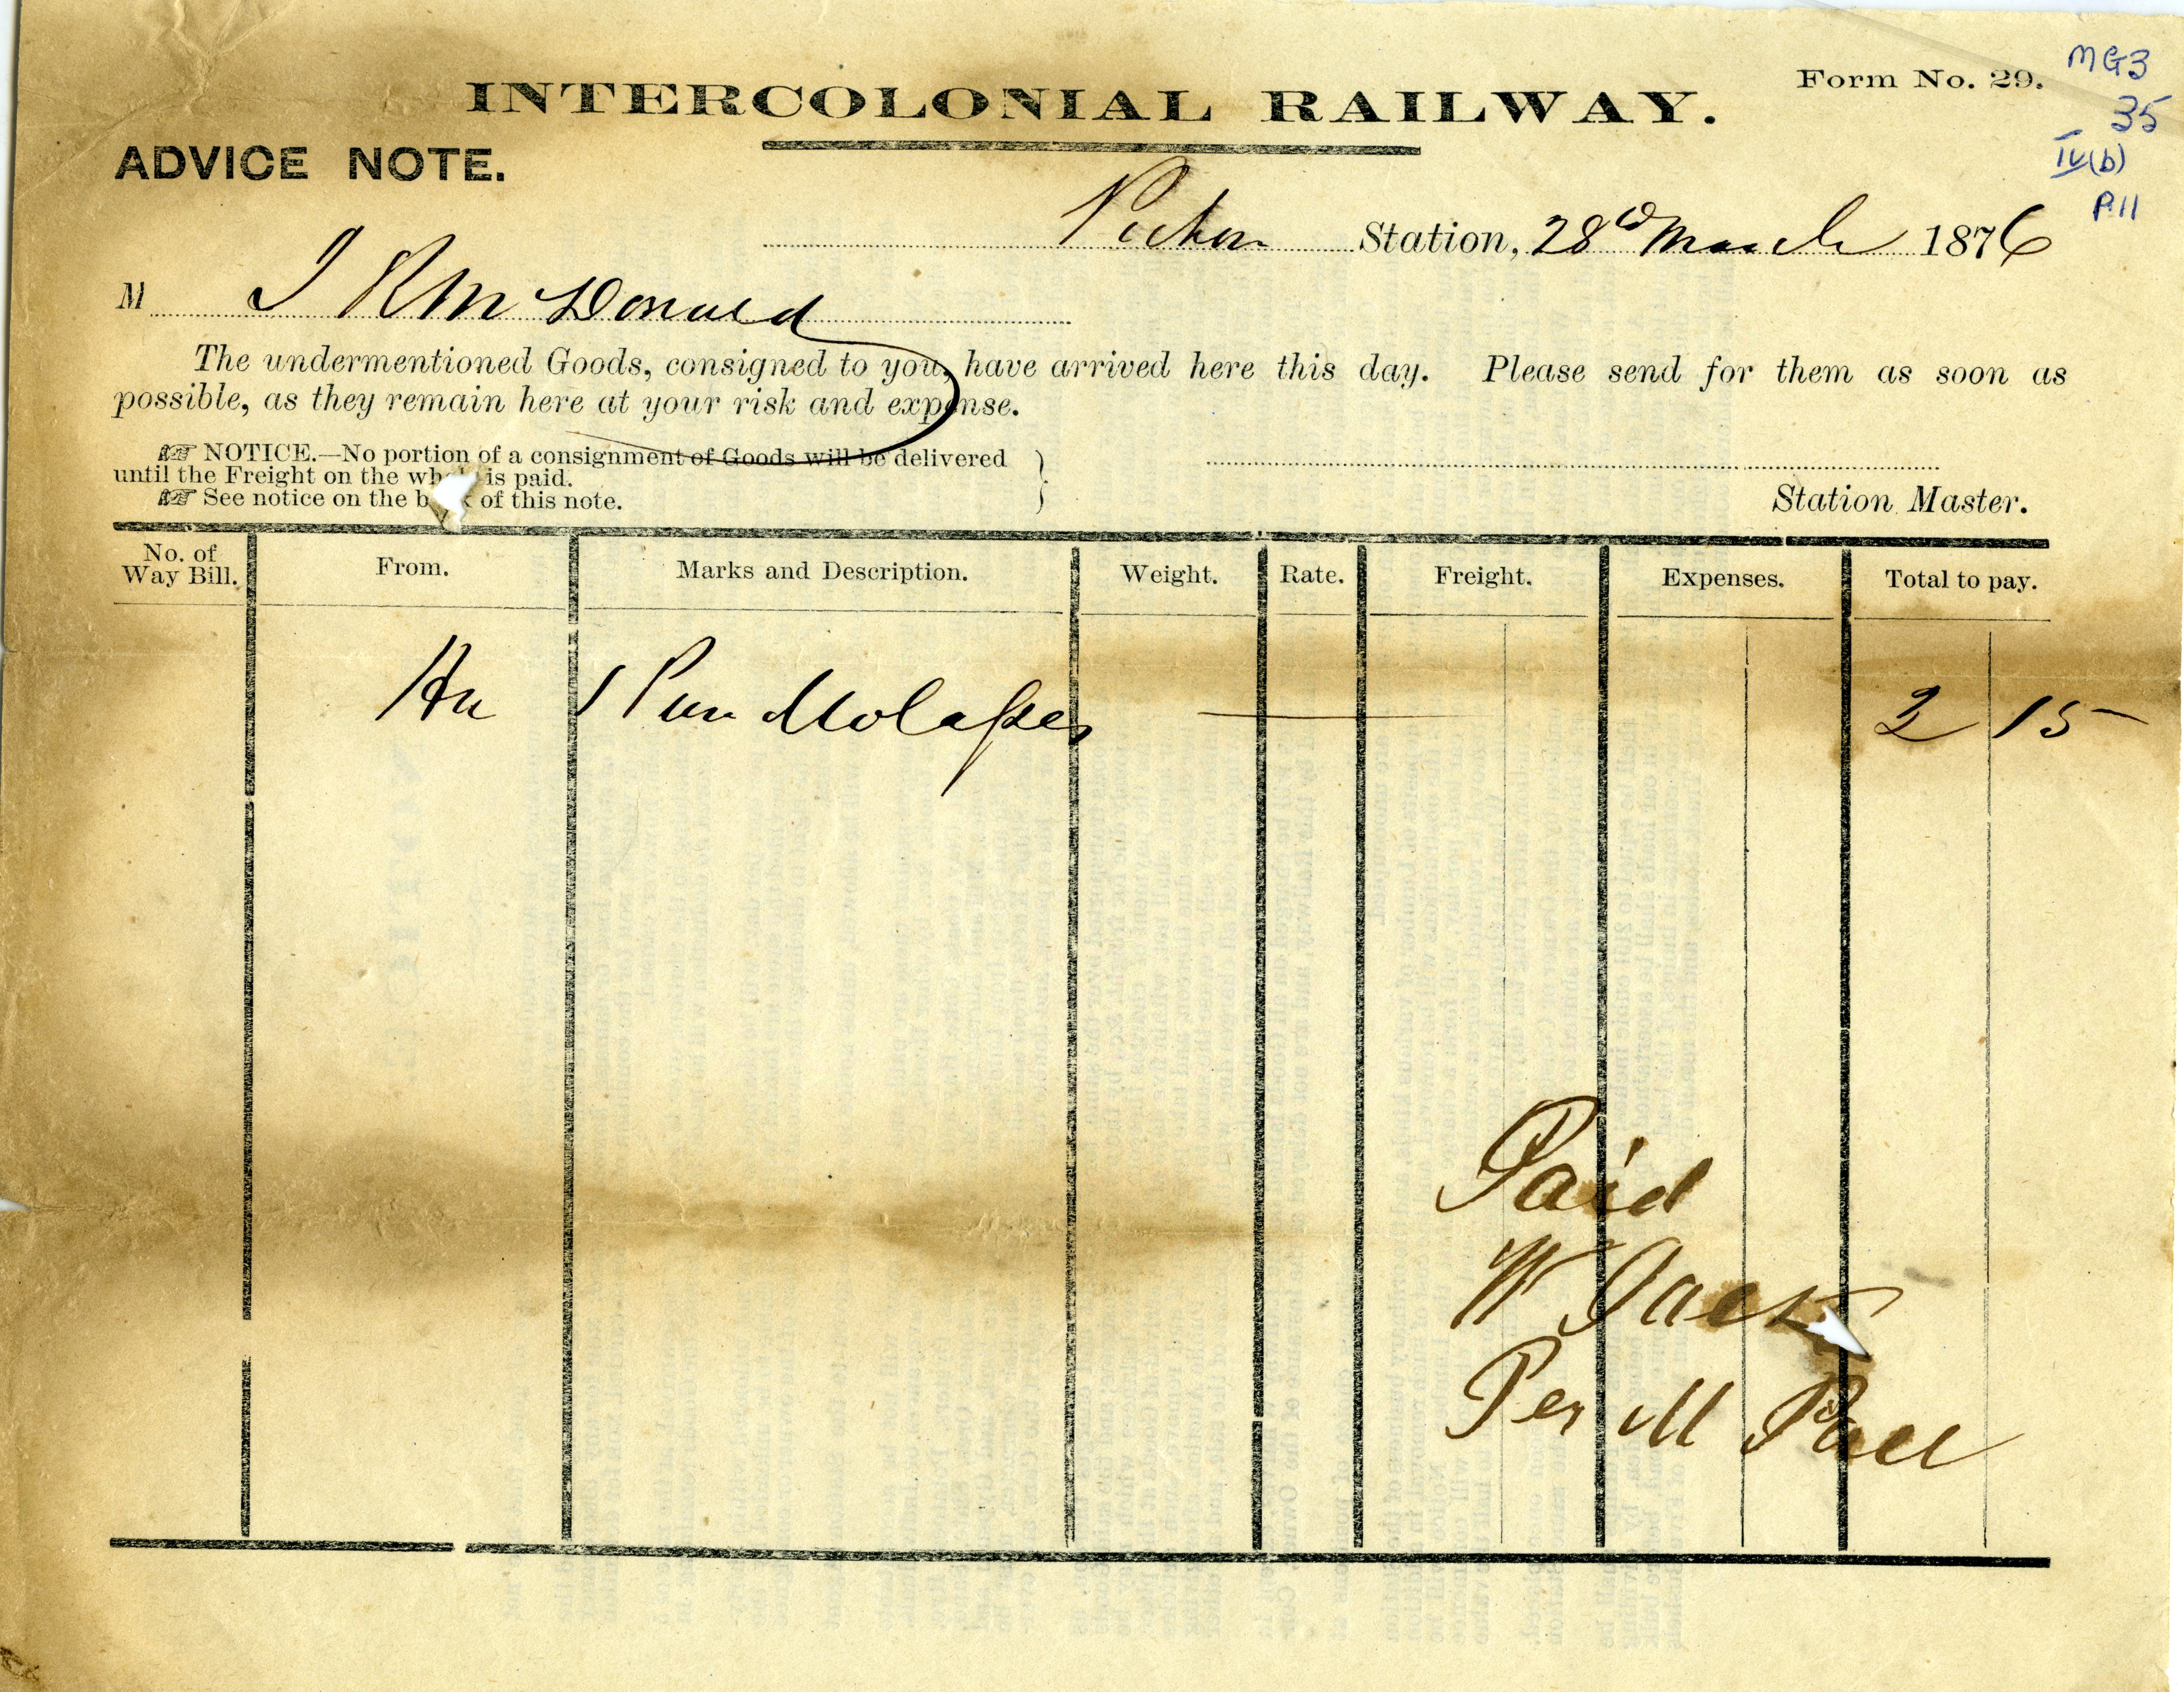 INTERCOLONIAL RAILWAY.
Form No. 29.
MG3
35
IV(b)
P.11
ADVICE NOTE.
Pictou Station, 28th March 1876
M J R McDonald
The undermentioned Goods, consigned to you, have arrived here this day. Please send for them as soon as
possible, as they remain here at your risk and expense.
☞ NOTICE.—No portion of a consignment of Goods will be delivered
until the Freight on the whole is paid.
☞ See notice on the back of this note.
Station Master.
No. of Way Bill. From. Marks and Description. Weight. Rate. Freight. Expenses. Total to pay.
Hx 1 Pun Molasses 2 15
Paid
W Jack
Per M